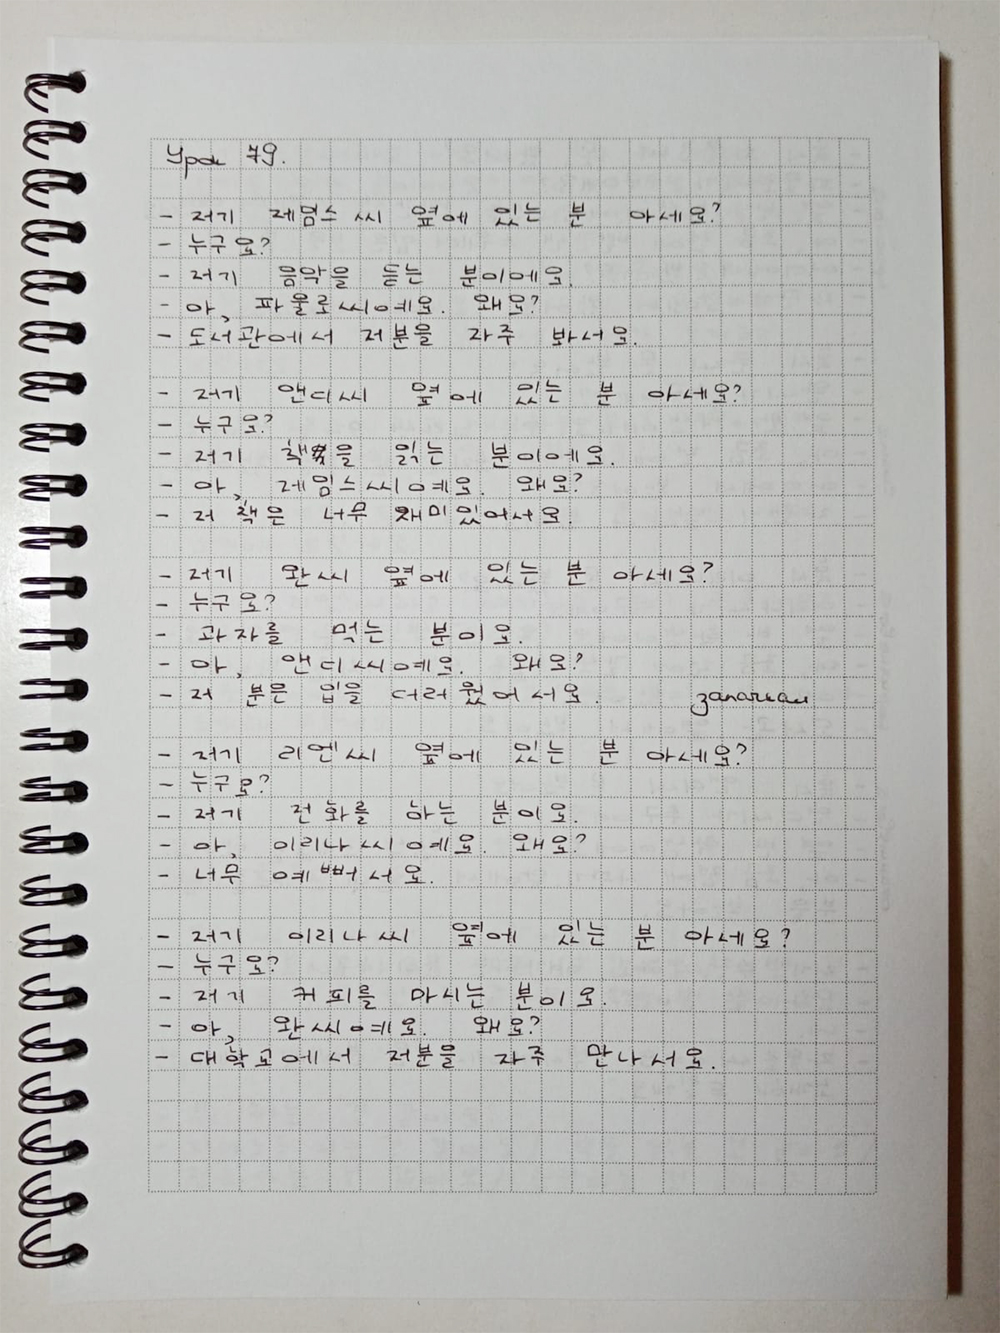 Урок 79.
- 저기 제임스 씨 옆에 있는 분 아세요?
- 누구요?
- 저기 음악을 듣는 분이에요.
- 아, 파울로씨예요. 왜요?
- 도서관에서 저분을 자주 봐서요.
- 저기 앤디씨 옆에 있는 분 아세요?
- 누구요?
- 저기 책을 읽는 분이에요.
- 아, 제임스씨예요. 왜요?
- 저 책은 너무 재미있어서요.
- 저기 완씨 옆에 있는 분 아세요?
- 누구요?
- 과자를 먹는 분이요.
- 아, 앤디씨예요. 왜요?
- 저 분은 입을 더러웠어서요. zanarean
- 저기 리엔씨 옆에 있는 분 아세요?
- 누구요?
- 저기 전화를 하는 분이요.
- 아, 이리나씨예요. 왜요?
- 너무 예뻐서요.
- 저기 이리나씨 옆에 있는 분 아세요?
- 누구요?
- 저기 커피를 마시는 분이요.
- 아, 완씨예요. 왜요?
- 대학교에서 저분을 자주 만나서요.